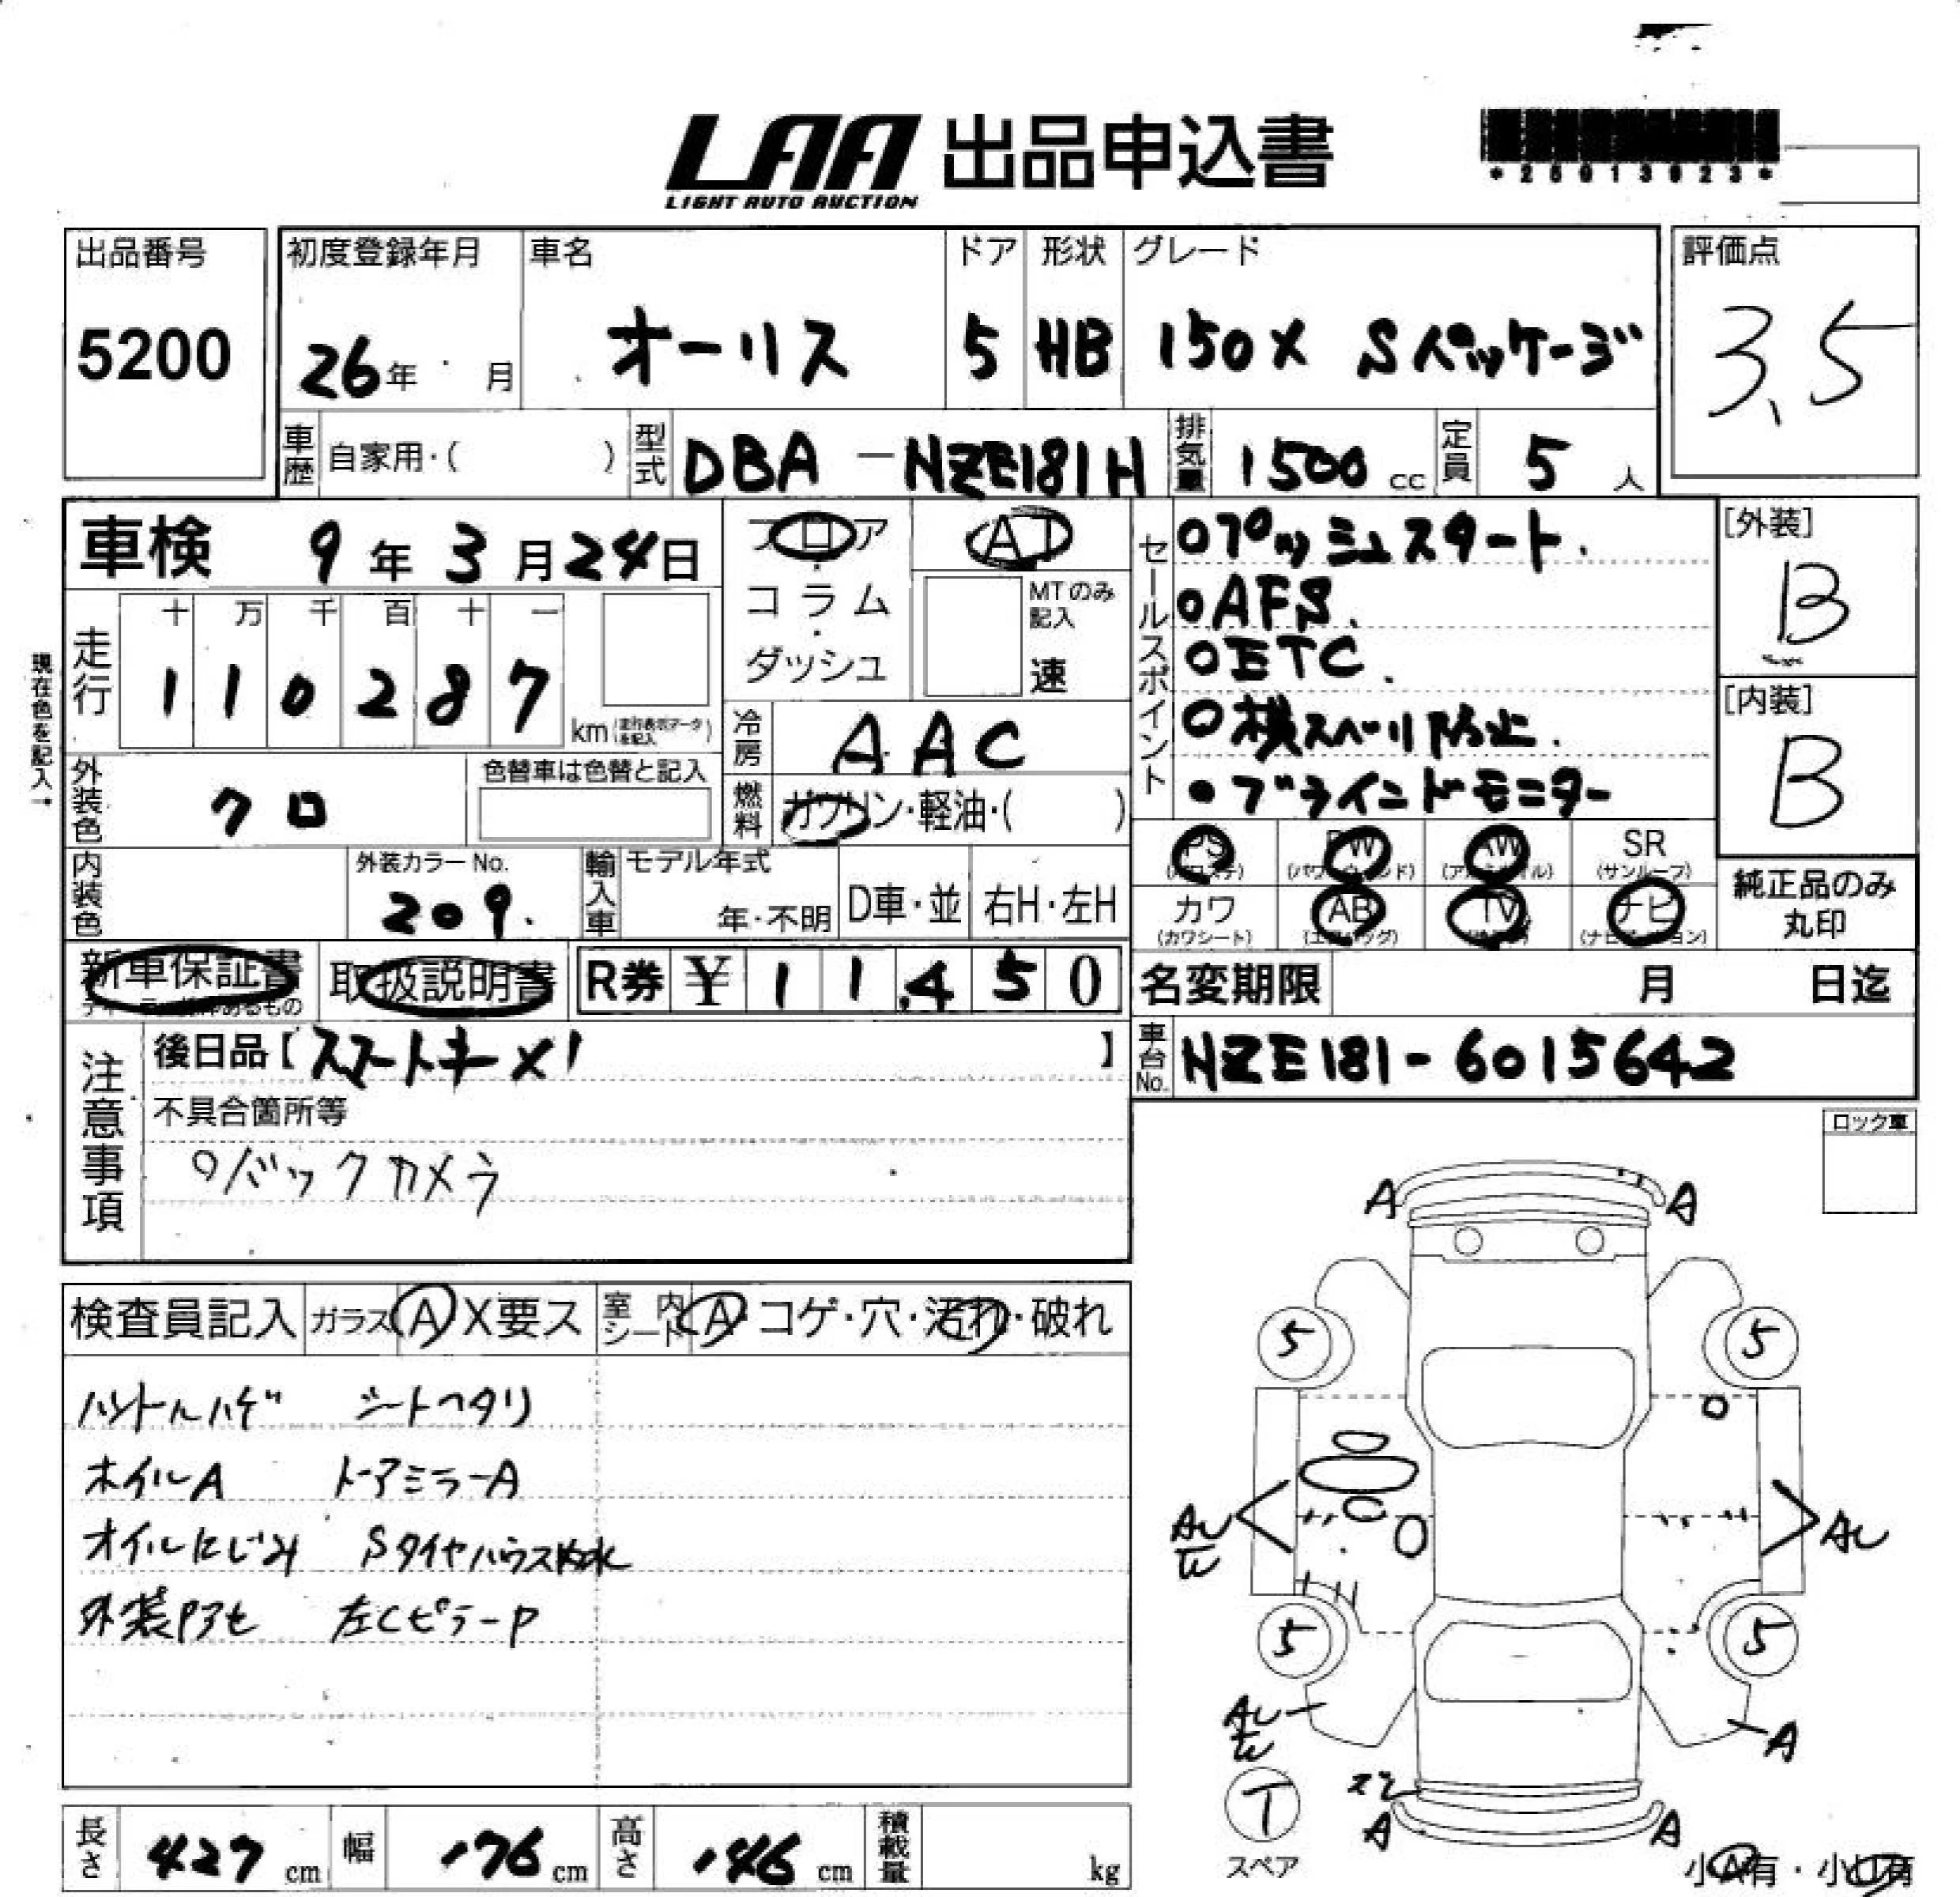 LAA 出品申込書
LIGHT AUTO AUCTION
出品番号
5200
初度登録年月
26年 月
車名
オーリス
ドア
5
形状
HB
グレード
150X Sパッケージ
評価点
3.5
車歴 自家用・( )
型式 DBA-NZE181H
排気量 1500 cc
定員 5 人
車検 9年3月24日
フロア
・
コラム
・
ダッシュ
AT
MTのみ記入
速
セールスポイント
○プッシュスタート.
○AFS.
○ETC.
○横スベリ防止.
○ブラインドモニター
[外装]
B
[内装]
B
現在色を記入→
走行
十 万 千 百 十 一
1 1 0 2 8 7
km
冷房 AAC
外装色 クロ
色替車は色替と記入
燃料 ガソリン・軽油・( )
内装色
外装カラーNo.
209.
輸入車
モデル年式
年・不明
D車・並
右H・左H
PS PW AW SR
(サンルーフ)
カワ AB TV ナビ
(カワシート)
純正品のみ
丸印
新車保証書
取扱説明書
R券 ¥ 11,450
名変期限 月 日迄
車台No. NZE181-6015642
注意事項
後日品【スマートキー×1 】
不具合箇所等
○バックカメラ
ロック車
検査員記入 ガラス A X要ス 室内シート A・コゲ・穴・汚れ・破れ
ハンドルハゲ シートヘタリ
ホイルA ドアミラーA
オイルにじみ Sタイヤハウス
外装アセ 左CピラーP
A A
5 5
AU
AU
5 5
AU
A
T
スペア
A A
小A有・小U有
長さ 427 cm
幅 176 cm
高さ 146 cm
積載量 kg